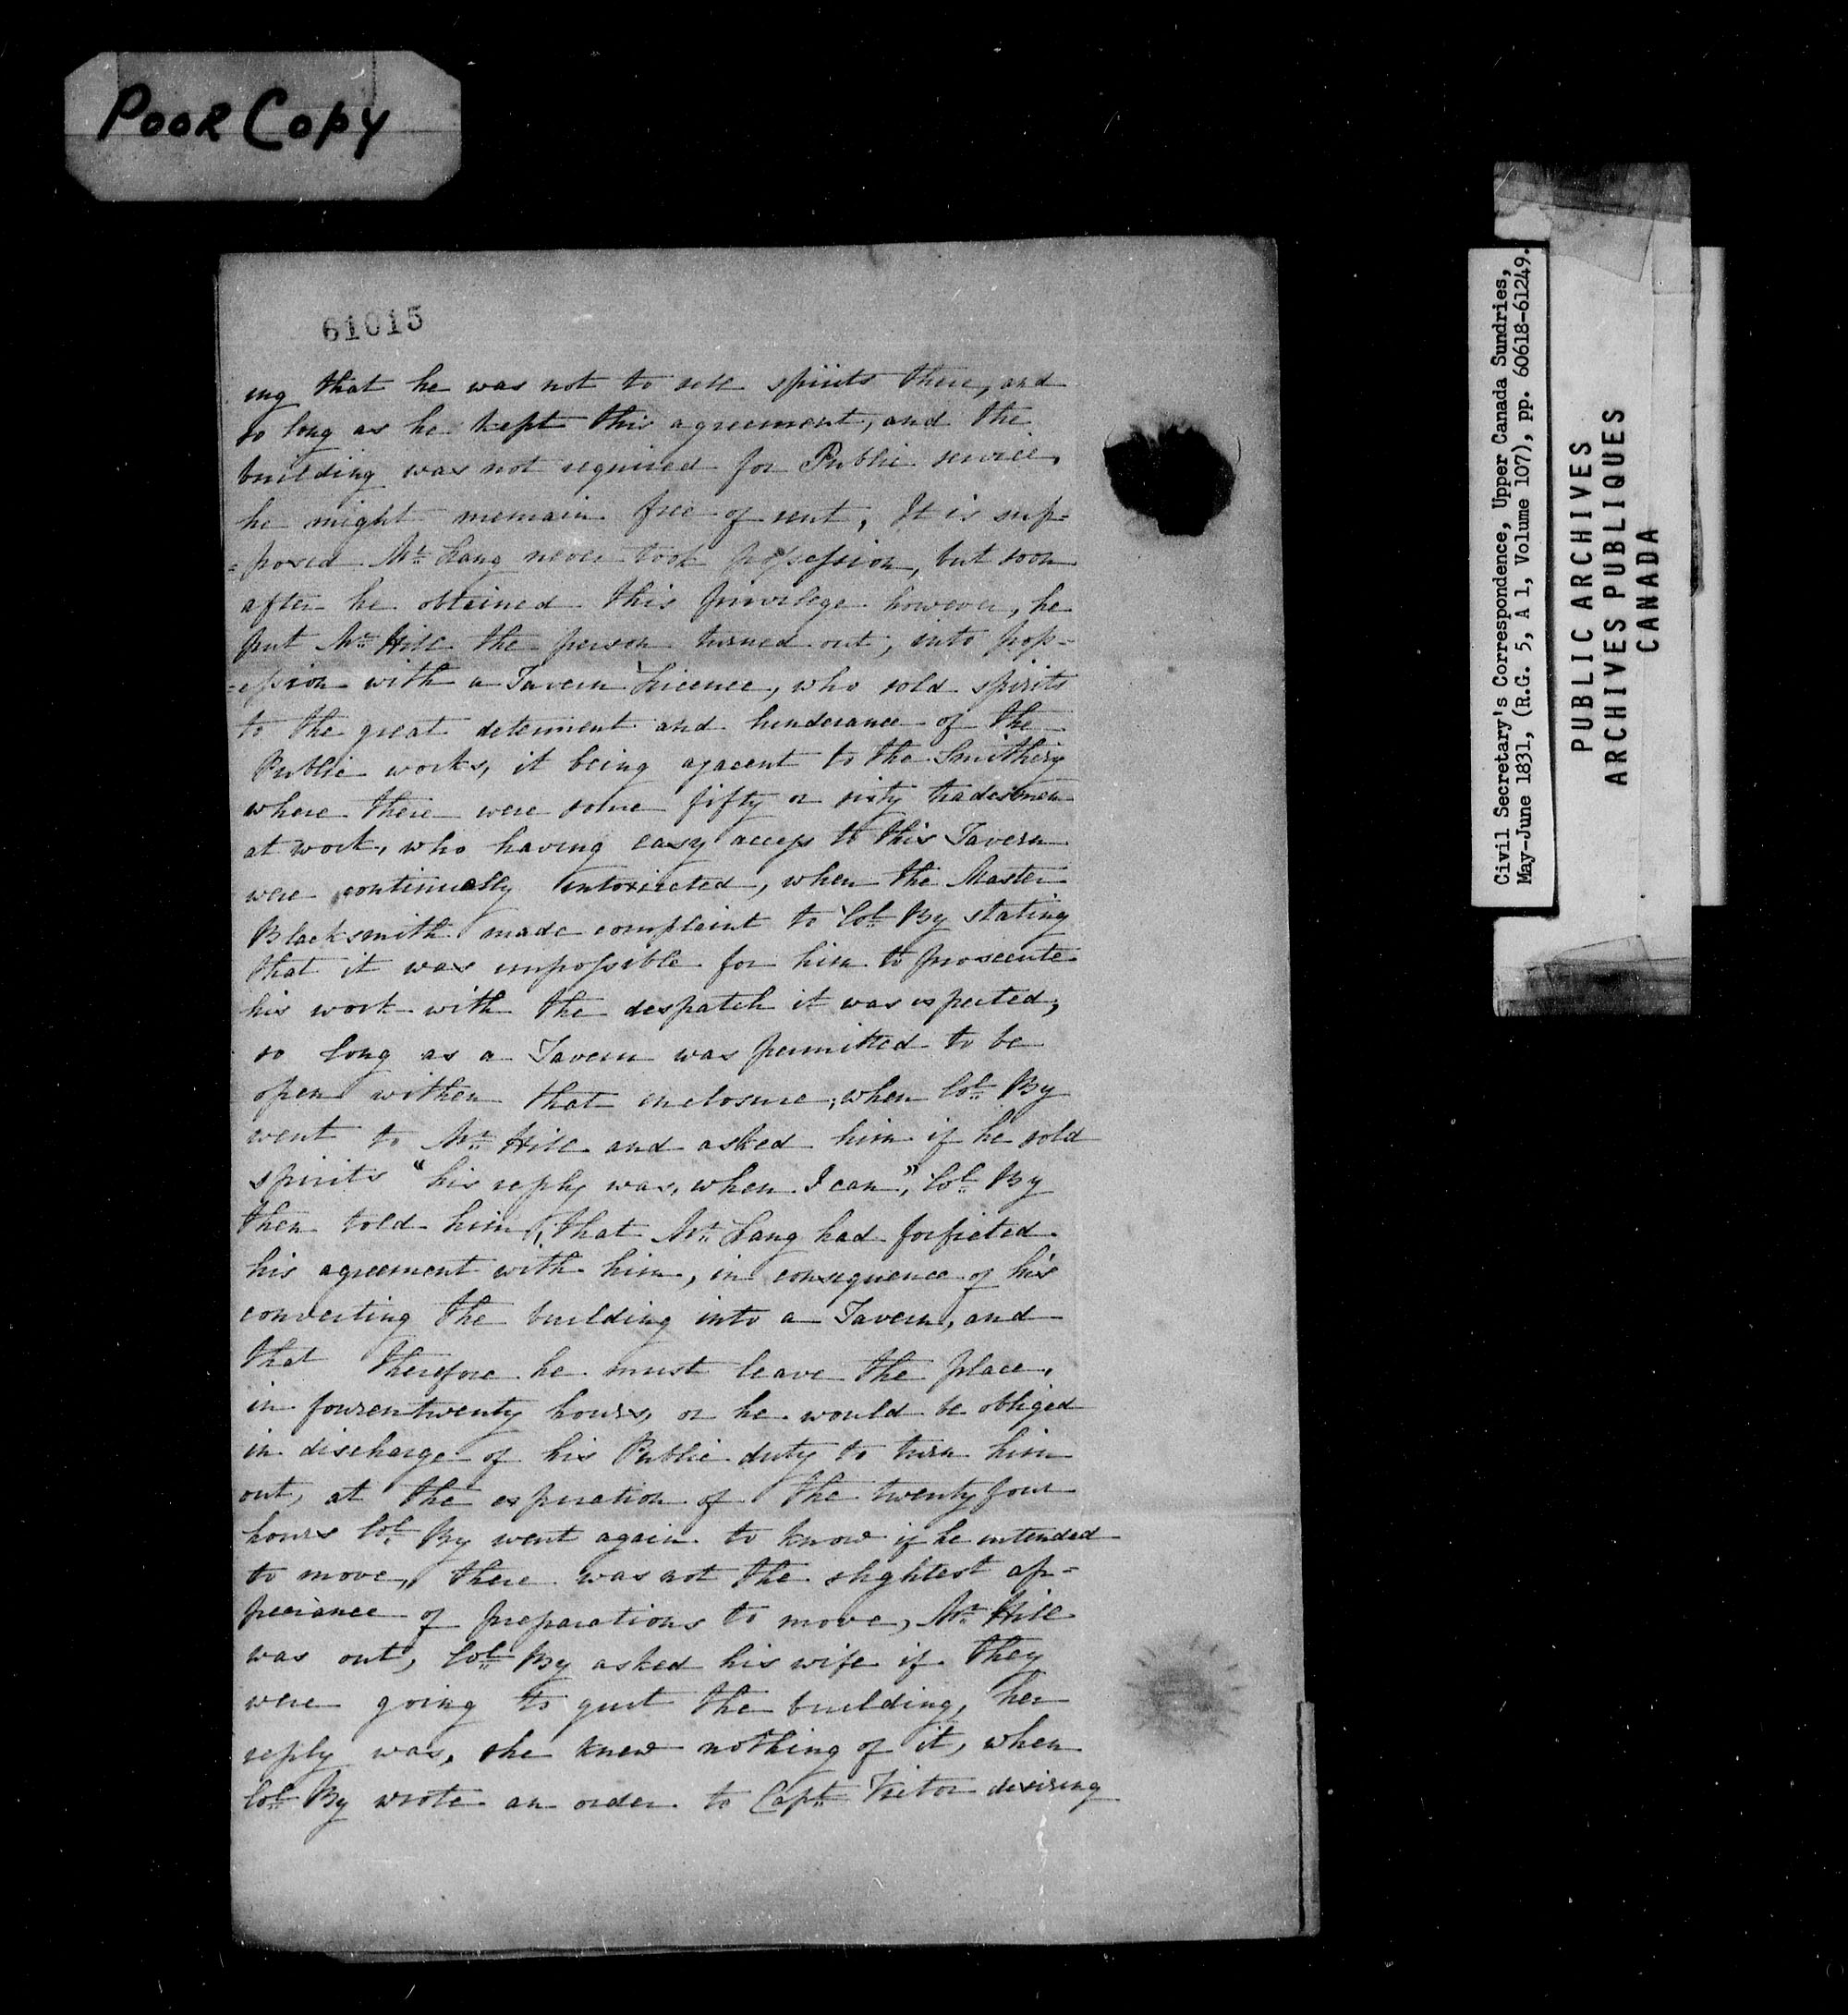 POOR COPY
61015
ing that he was not to sell spirits there, and
so long as he kept this agreement, and the
building was not required for Public service,
he might memain free of rent, It is sup=
=posed Mr. Lang never took possession, but soon
after he obtained this privilege however, he
put Mr. Hill the person turned out, into pos=
=ession with a Tavern Licence, who sold spirits
to the great deteriment and hinderance of the
Public works, it being ajacent to the Smithery
where there were some fifty or sixty tradesmen
at work, who having easy access to this Tavern
were continually intoxicated, when the Master
Blacksmith made complaint to Col. By stating
that it was impossible for him to prosecute
his work with the despatch it was expected,
so long as a Tavern was permitted to be
open withen that inclosure, when Col. By
went to Mr. Hill and asked him if he sold
spirits "his reply was, when I can", Col. By
then told him, that Mr. Lang had forfieted
his agreement with him, in consequence of his
converting the building into a Tavern, and
that therefore he must leave the place,
in fourentwenty hours, or he would be obliged
in discharge of his Public duty to turn him
out, at the expiration of the twenty four
hours Col. By went again to know if he intended
to move, there was not the slightest ap=
peerance of preparations to move, Mr. Hill
was out, Col. By asked his wife if they
were going to quit the building, her
reply was, she knew nothing of it, when
Col. By wrote an order to Capt. Victor desiring
Civil Secretary's Correspondence, Upper Canada Sundries,
May-June 1831, (R.G. 5, A 1, Volume 107), pp. 60618-61249.
PUBLIC ARCHIVES
ARCHIVES PUBLIQUES
CANADA